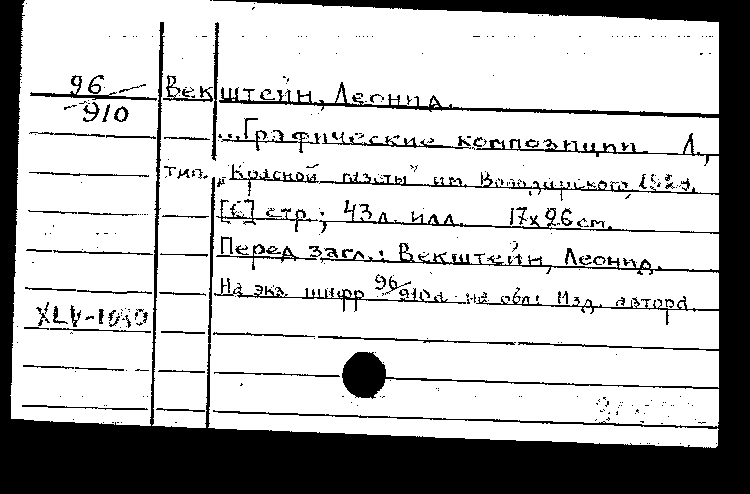 96/910 Векштейн, Леонид.
...Графические композиции. Л.,
тип. „Красной газеты" им. Володарского, 1929.
[6] стр.; 43 л. илл. 17х26 см.
Перед загл.: Векштейн, Леонид.
На экз. шифр 96/910а на обл: Изд. автора.
XLV-1090